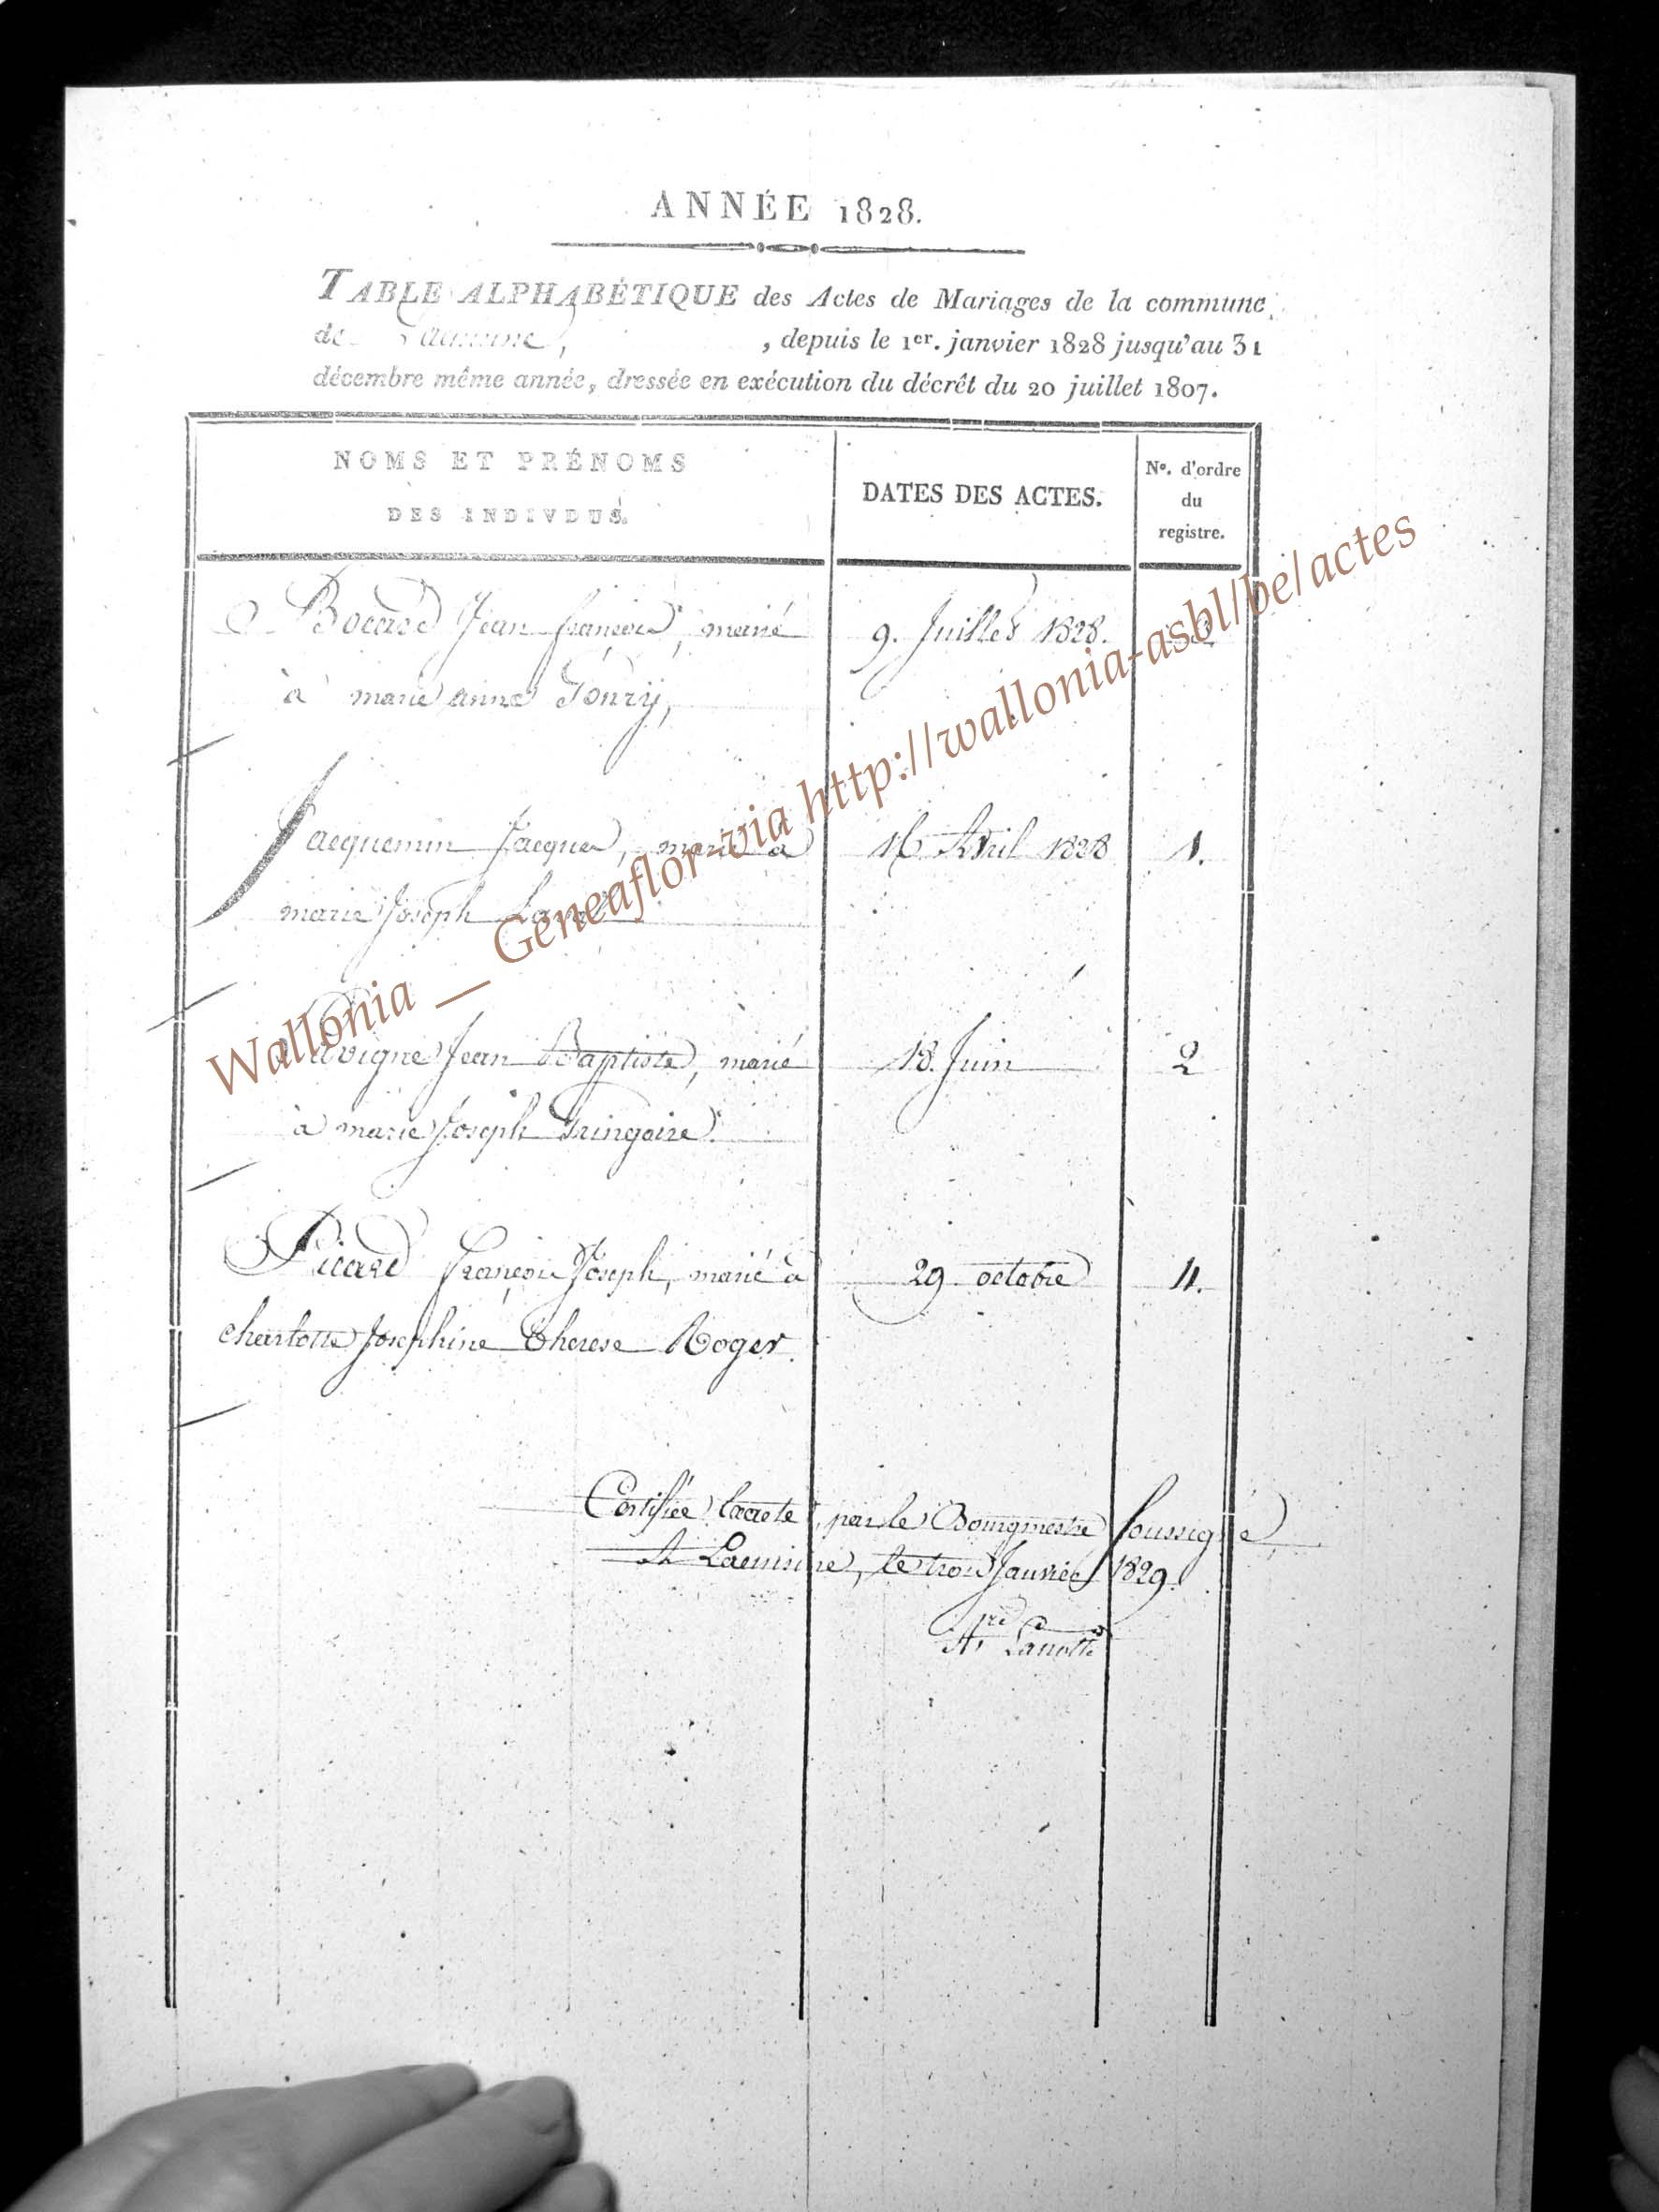 ANNÉE 1828.
TABLE ALPHABÉTIQUE des Actes de Mariages de la commune
de Laminne, , depuis le 1er. janvier 1828 jusqu'au 31
décembre même année, dressée en exécution du décrêt du 20 juillet 1807.
NOMS ET PRÉNOMS
DES INDIVDUS.
DATES DES ACTES.
No. d'ordre
du
registre.
Bocard Jean françois, marié 9. Juillet 1828. 3
à marie anne
Jacquemin Jacques, marié à 16 Avril 1828 1.
marie Joseph
Lavigne Jean Baptiste, marié 18. Juin 2
à marie Joseph Gringoire.
Picard françois Joseph, marié à 29 octobre 4.
charlotte Josephine therese Roger.
Certifiée par le Bourgmestre soussigné,
A Laminne, le trois Janvier 1829.
Lanotte
Wallonia _ Geneaflor-via http://wallonia-asbl/be/actes